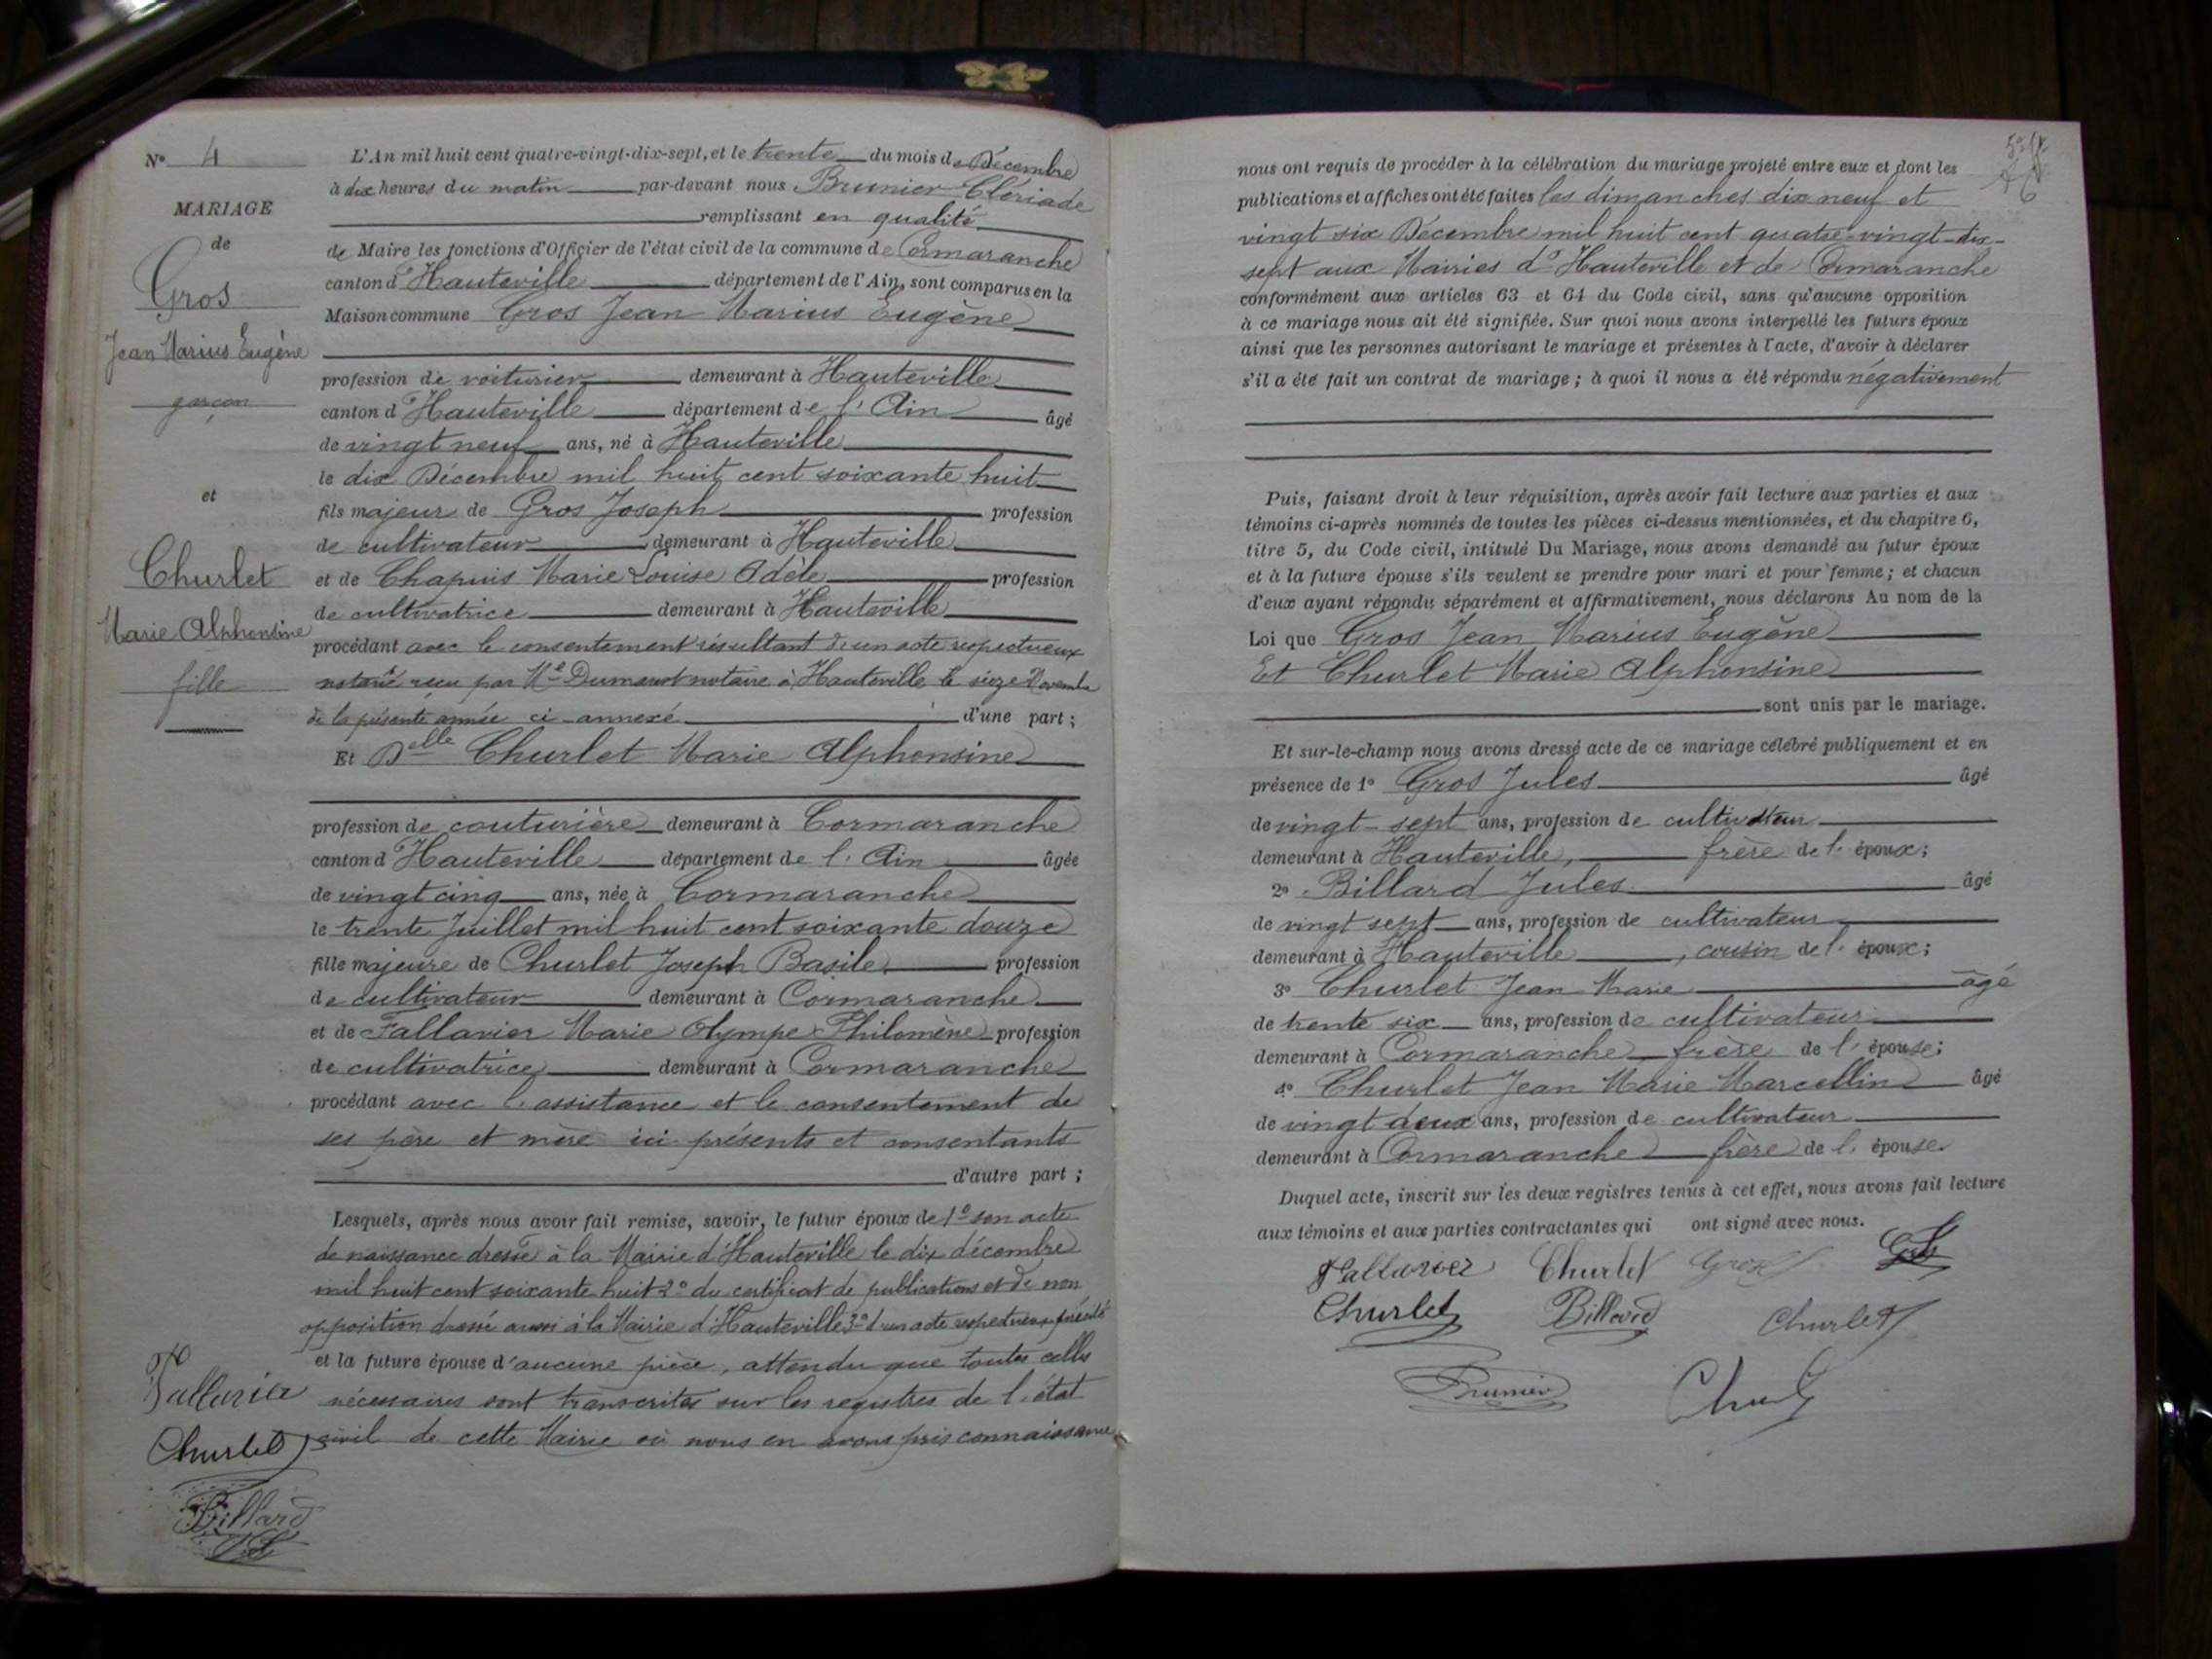 N° 4
MARIAGE
de
Gros
Jean Marius Eugène
garçon
et
Churlet
Marie Alphonsine
fille
L'An mil huit cent quatre-vingt-dix-sept, et le trente du mois de Décembre
à dix heures du matin par-devant nous Brunier Clériade
remplissant en qualité
de Maire les fonctions d'Officier de l'état civil de la commune de Cormaranche
canton d'Hauteville département de l'Ain, sont comparus en la
Maison commune Gros Jean Marius Eugène
profession de voiturier demeurant à Hauteville
canton d'Hauteville département de l'Ain âgé
de vingt neuf ans, né à Hauteville
le dix Décembre mil huit cent soixante huit
fils majeur de Gros Joseph profession
de cultivateur demeurant à Hauteville
et de Chapuis Marie Louise Adèle profession
de cultivatrice demeurant à Hauteville
procédant avec le consentement résultant d'un acte respectueux
notarié reçu par Me Dumarest notaire à Hauteville le seize Novembre
de la présente année ci-annexé d'une part ;
Et Delle Churlet Marie Alphonsine
profession de couturière demeurant à Cormaranche
canton d'Hauteville département de l'Ain âgée
de vingt cinq ans, née à Cormaranche
le trente Juillet mil huit cent soixante douze
fille majeure de Churlet Joseph Basile profession
de cultivateur demeurant à Cormaranche
et de Fallavier Marie Olympe Philomène profession
de cultivatrice demeurant à Cormaranche
procédant avec l'assistance et le consentement de
ses père et mère ici présents et consentants
d'autre part ;
Lesquels, après nous avoir fait remise, savoir, le futur époux de 1° son acte
de naissance dressé à la Mairie d'Hauteville le dix décembre
mil huit cent soixante huit 2° du certificat de publications et de non
opposition dressé aussi à la Mairie d'Hauteville 3° d'un acte respectueux précité
et la future épouse d'aucune pièce, attendu que toutes celles
nécessaires sont transcrites sur les registres de l'état
civil de cette Mairie où nous en avons pris connaissance
Fallavier
Churlet
Billard
nous ont requis de procéder à la célébration du mariage projeté entre eux et dont les
publications et affiches ont été faites les dimanches dix neuf et
vingt six Décembre mil huit cent quatre-vingt-dix-
sept aux Mairies d'Hauteville et de Cormaranche
conformément aux articles 63 et 64 du Code civil, sans qu'aucune opposition
à ce mariage nous ait été signifiée. Sur quoi nous avons interpellé les futurs époux
ainsi que les personnes autorisant le mariage et présentes à l'acte, d'avoir à déclarer
s'il a été fait un contrat de mariage ; à quoi il nous a été répondu négativement
Puis, faisant droit à leur réquisition, après avoir fait lecture aux parties et aux
témoins ci-après nommés de toutes les pièces ci-dessus mentionnées, et du chapitre 6,
titre 5, du Code civil, intitulé Du Mariage, nous avons demandé au futur époux
et à la future épouse s'ils veulent se prendre pour mari et pour femme ; et chacun
d'eux ayant répondu séparément et affirmativement, nous déclarons Au nom de la
Loi que Gros Jean Marius Eugène
Et Churlet Marie Alphonsine
sont unis par le mariage.
Et sur-le-champ nous avons dressé acte de ce mariage célébré publiquement et en
présence de 1° Gros Jules âgé
de vingt-sept ans, profession de cultivateur
demeurant à Hauteville, frère de l'époux ;
2° Billard Jules âgé
de vingt sept ans, profession de cultivateur
demeurant à Hauteville, cousin de l'époux ;
3° Churlet Jean Marie âgé
de trente six ans, profession de cultivateur
demeurant à Cormaranche frère de l'épouse ;
4° Churlet Jean Marie Marcellin âgé
de vingt deux ans, profession de cultivateur
demeurant à Cormaranche frère de l'épouse.
Duquel acte, inscrit sur les deux registres tenus à cet effet, nous avons fait lecture
aux témoins et aux parties contractantes qui ont signé avec nous.
Fallavier Churlet Gros Gros
Churlet Billard Churlet
Brunier